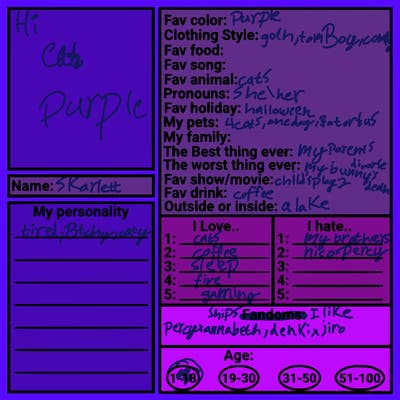 Hi
Cats
purple
Name: Skarlett
My personality
tired, Bitchy,
Fav color: Purple
Clothing Style: goth, tomBoy,
Fav food:
Fav song:
Fav animal: cats
Pronouns: She\her
Fav holiday: halloween
My pets: 4 cats, one dog,
My family:
The Best thing ever: My Parents divorce
The worst thing ever: my bunnys death
Fav show/movie: childsplay 2
Fav drink: coffee
Outside or inside: a lake
I Love..
1: cats
2: coffee
3: sleep
4: fire
5: gaming
i hate..
1: my brothers
2: nico percy
3:
4:
5:
Ships Fandoms: I like
Percyxannabeth, denkixjiro
Age:
1-18 19-30 31-50 51-100